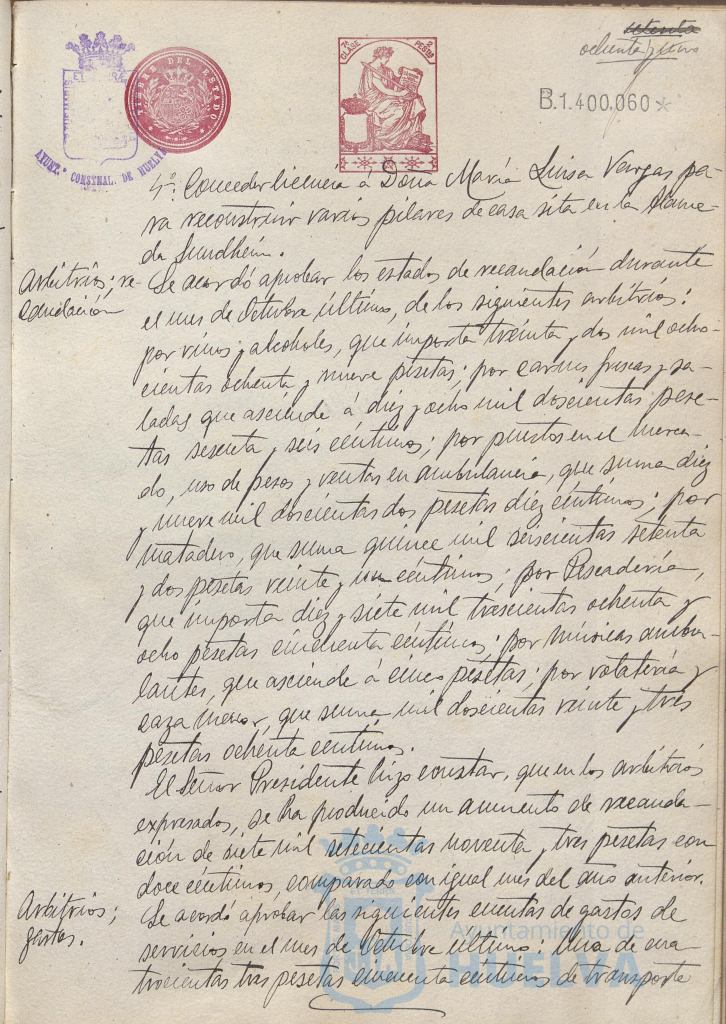 setenta
ochenta y uno
TIMBRE DEL ESTADO
7ª CLASE 2 PESTAS
B.1.400,060
AYUNT.º CONSTNAL. DE HUELVA
4º: Conceder licencia á Doña María Luisa Vargas pa-
ra reconstruir varios pilares de casa sita en la Alame-
da Sundheim.
Arbitrios; re-
caudación
Se acordó aprobar los estados de recaudación durante
el mes de Octubre último, de los siguientes arbitrios:
por vinos y alcoholes, que importa treinta y dos mil ocho-
cientas ochenta y nueve pesetas; por carnes frescas y sa-
ladas que asciende á diez y ocho mil doscientas pese-
tas sesenta y seis céntimos; por puestos en el merca-
do, uso de pesos y ventas en ambulancia, que suma diez
y nueve mil doscientas dos pesetas diez céntimos; por
matadero, que suma quince mil seiscientas setenta
y dos pesetas veinte y un céntimos; por Pescadería,
que importa diez y siete mil trescientas ochenta y
ocho pesetas cincuenta céntimos; por músicas ambu-
lantes, que asciende á cinco pesetas; por volatería y
caza menor, que suma mil doscientas veinte y tres
pesetas ochenta céntimos.
El Señor Presidente hizo constar, que en los arbitrios
expresados, se ha producido un aumento de recauda-
ción de siete mil setecientas noventa y tres pesetas con
doce céntimos, comparado con igual mes del año anterior.
Arbitrios;
gastos.
Se acordó aprobar las siguientes cuentas de gastos de
servicios en el mes de Octubre último: Una de cua-
trocientas tres pesetas cincuenta céntimos de transporte
Ayuntamiento de
HUELVA